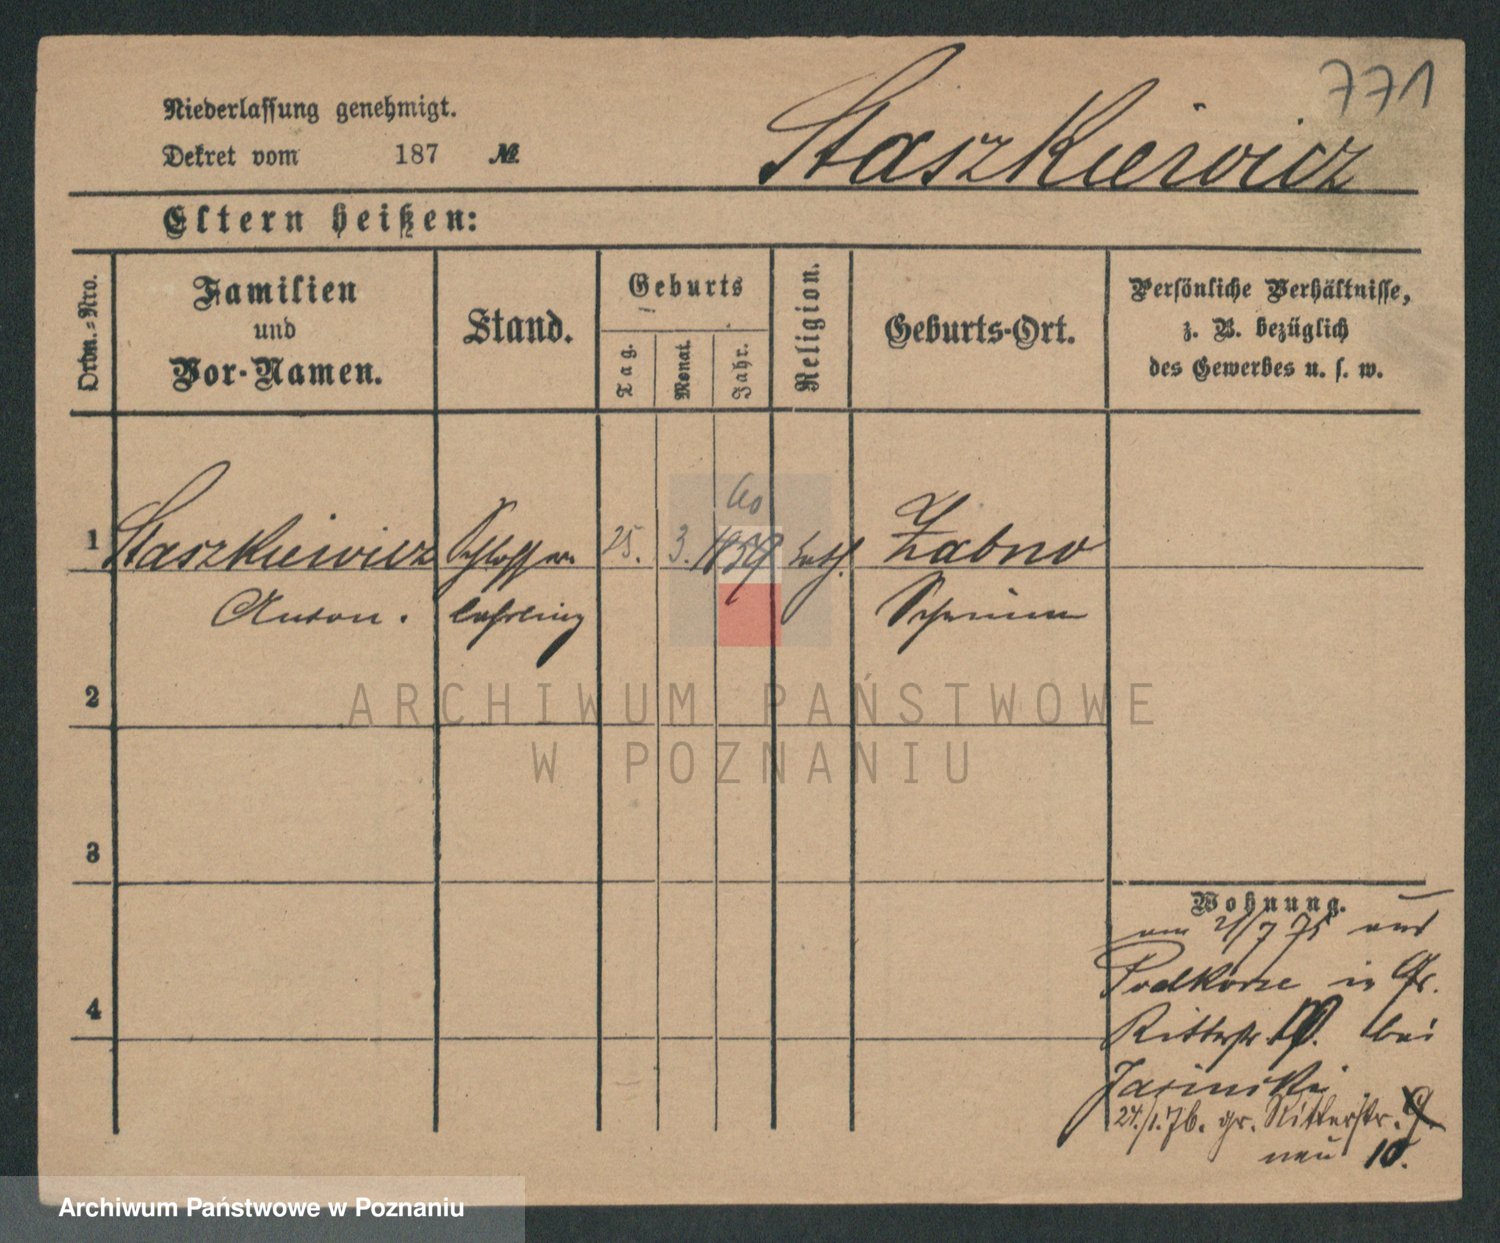 771
Niederlassung genehmigt.
Dekret vom 187 №
Staszkiewicz
Eltern heißen:
Ordn.=Nro.
Familien
und
Vor-Namen.
Stand.
Geburts
Tag.
Monat.
Jahr.
Religion.
Geburts-Ort.
Persönliche Verhältnisse,
z. B. bezüglich
des Gewerbes u. s. w.
60
1 Staszkiewicz Schlosser 25. 3. Zabno
Anton. lehrling Schrimm
2
ARCHIWUM PAŃSTWOWE
W POZNANIU
3
Wohnung.
am 21/7 75 aus
in Gr.
Ritterstr. bei
Jasinski
24./1.76. gr. Ritterstr. 9.
neu 10.
4
Archiwum Państwowe w Poznaniu